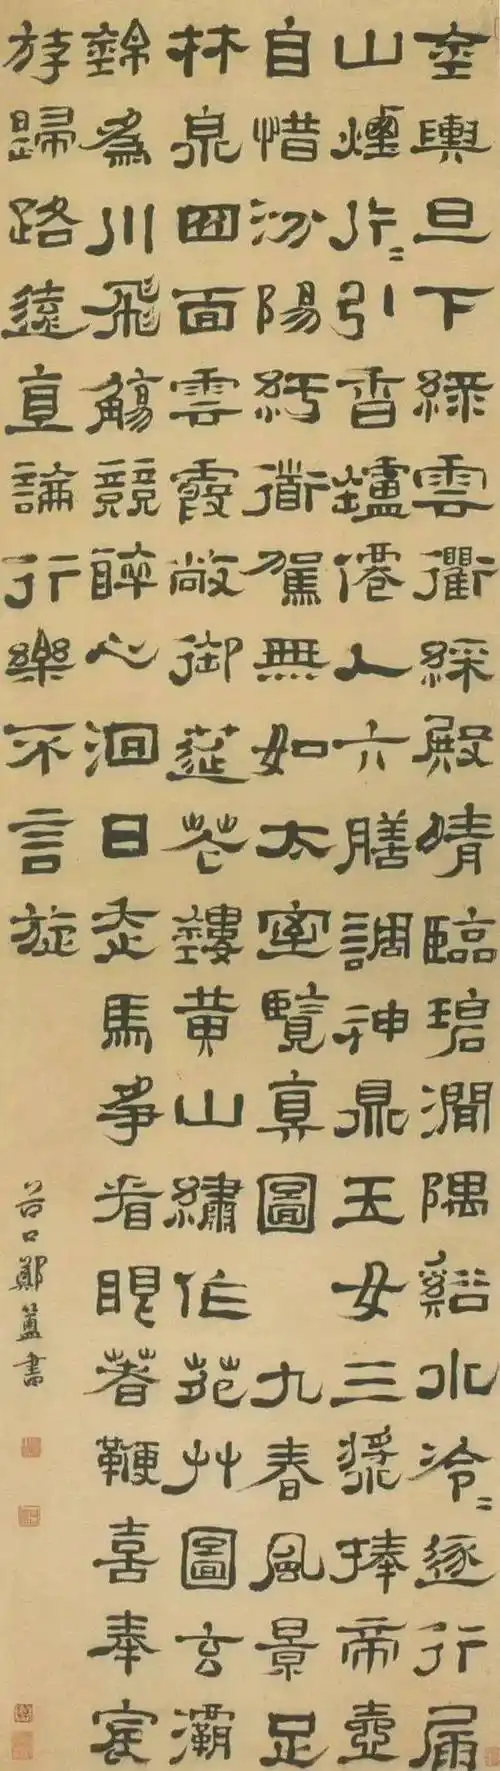 金輿旦下綠雲衢綵殿晴臨碧澗隅谿水泠〻逐行屚
山煙片〻引香鑪僊人六膳調神鼎玉女三漿捧帝壺
自惜汾陽紆衜駕無如太室覽真圖 九春風景足
林泉四面雲霞敞御筵花鏤黃山繡作苑艸圖玄灞
錦為川飛觴競醉心迴日走馬爭看眼著鞭喜奉宸
遊歸路遠直論行樂不言旋
谷口鄭簠書